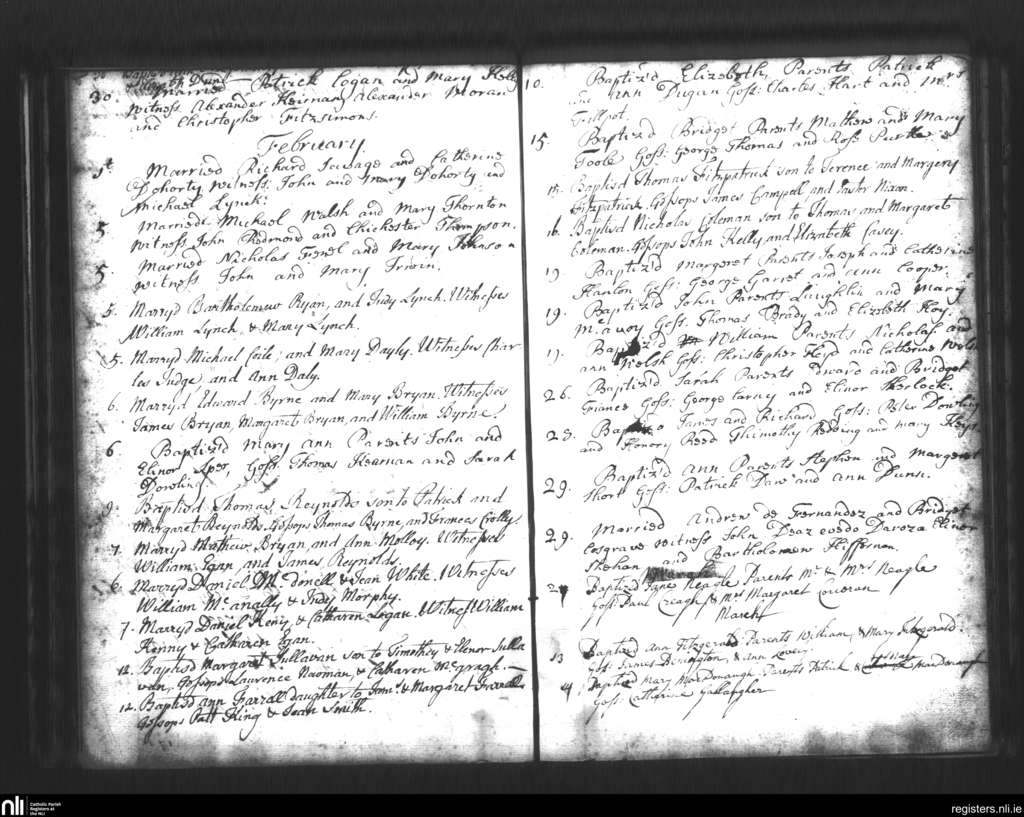 30. Married Patrick Cogan and Mary Kelly
Witness Alexander Heirnan, Alexander Moran
and Christopher Fitzsimons.
February
1st Married Richard Savage and Catherine
Dohorty witness: John and Mary Dohorty and
Michael Lynck:
5 Married Michael Walsh and Mary Thornton
witness John Redmond and Chichester Thompson.
5. Married Nicholas and Mary Johnson
witness John and Mary Irwin.
5. Marryd Bartholemew Ryan, and Judy Lynch. Witnesses
William Lynch & Mary Lynch.
5. Marryd Michael Coile, and Mary Dayly. Witnesses Char
les Judge and Ann Daly.
6. Marryd Edward Byrne and Mary Bryan. Witnesses
James Bryan, Margaret Bryan, and William Byrne.
6 Baptiz'd Mary ann Parents John and
Elinor Goss: Thomas Hearnan and Sarah
Dowling.
9. Baptisd Thomas Reynolds son to Patrick and
Margaret Reynolds. Gossops Thomas Byrne, and Frances Crolly.
7. Marryd Mathew Bryan, and Ann Molloy. Witnesses
William Egan and James Reynolds.
6. Marryd Daniel Mc donell & Jean White. Witnesses
William Mc anally & Judy Morphy.
7. Marryd Daniel Keny, & Catharen Logan. Witness William
Kenny & Catharen Egan.
12. Baptisd Margaret Sullavan son to Timothy & Elenor Sulla
van, Gossops Laurence Naoman, & Catharen
12. Baptisd ann Farrall daughter to & Margaret Farrall
Gossops Patt King & Jean Smith.
10. Baptiz'd Elizabeth, Parents Patrick
and Ann Dugan Goss: Charles Hart and Mrs
Fullpot.
15. Baptiz'd Bridget Parents Mathew and Mary
Toole Goss: George Thomas and Rose
15. Baptisd Thomas Fitzpatrick son to Terence and Margery
Fitzpatrick. Gossops James Campel, and Nixon.
16. Baptisd Nicholas Coleman son to Thomas and Margaret
Coleman. Gossops John Kelly, and Elizabeth Casey.
19 Baptiz'd Margeret Parents Joseph and Catherine
Hanlon Goss: George Garret and ann Cooper.
19. Baptiz'd John Parents Laughlin and Mary
McAvoy Goss: Thomas Brady and Elizebeth Hoy.
19. Baptiz'd William Parents Nicholas and
ann Welsh Goss: Christopher and Catherine
26. Baptiz'd Sarah Parents and Bridget
Goss: George Carny and Elinor Sherlock.
23. James and Richard Goss: Peter Dowling
and Honory Reed Thimothy Redding and Mary
29. Baptiz'd Ann Parents Stephen and Margeret
Short Goss: Patrick Daw and Ann Dunn.
29. Married Andrew de Fernandez and Bridget
Cosgrave witness John Diaz evedo Elinor
Shehan and Bartholomew Hiffernon.
2 Baptized Jane Neagle Parents Mr & Mrs Neagle
Goss: Paul Creagh & Mrs Margaret
March
13 Baptized Ann Fitzgerald Parents William, & Mary Fitzgerald.
Goss: James Derington, & ann
14 Baptized Mary MacDonaugh Parents Patrick & MacDonaugh
Goss: Catharine Gallaugher
nli Catholic Parish
Registers at
the NLI
registers.nli.ie